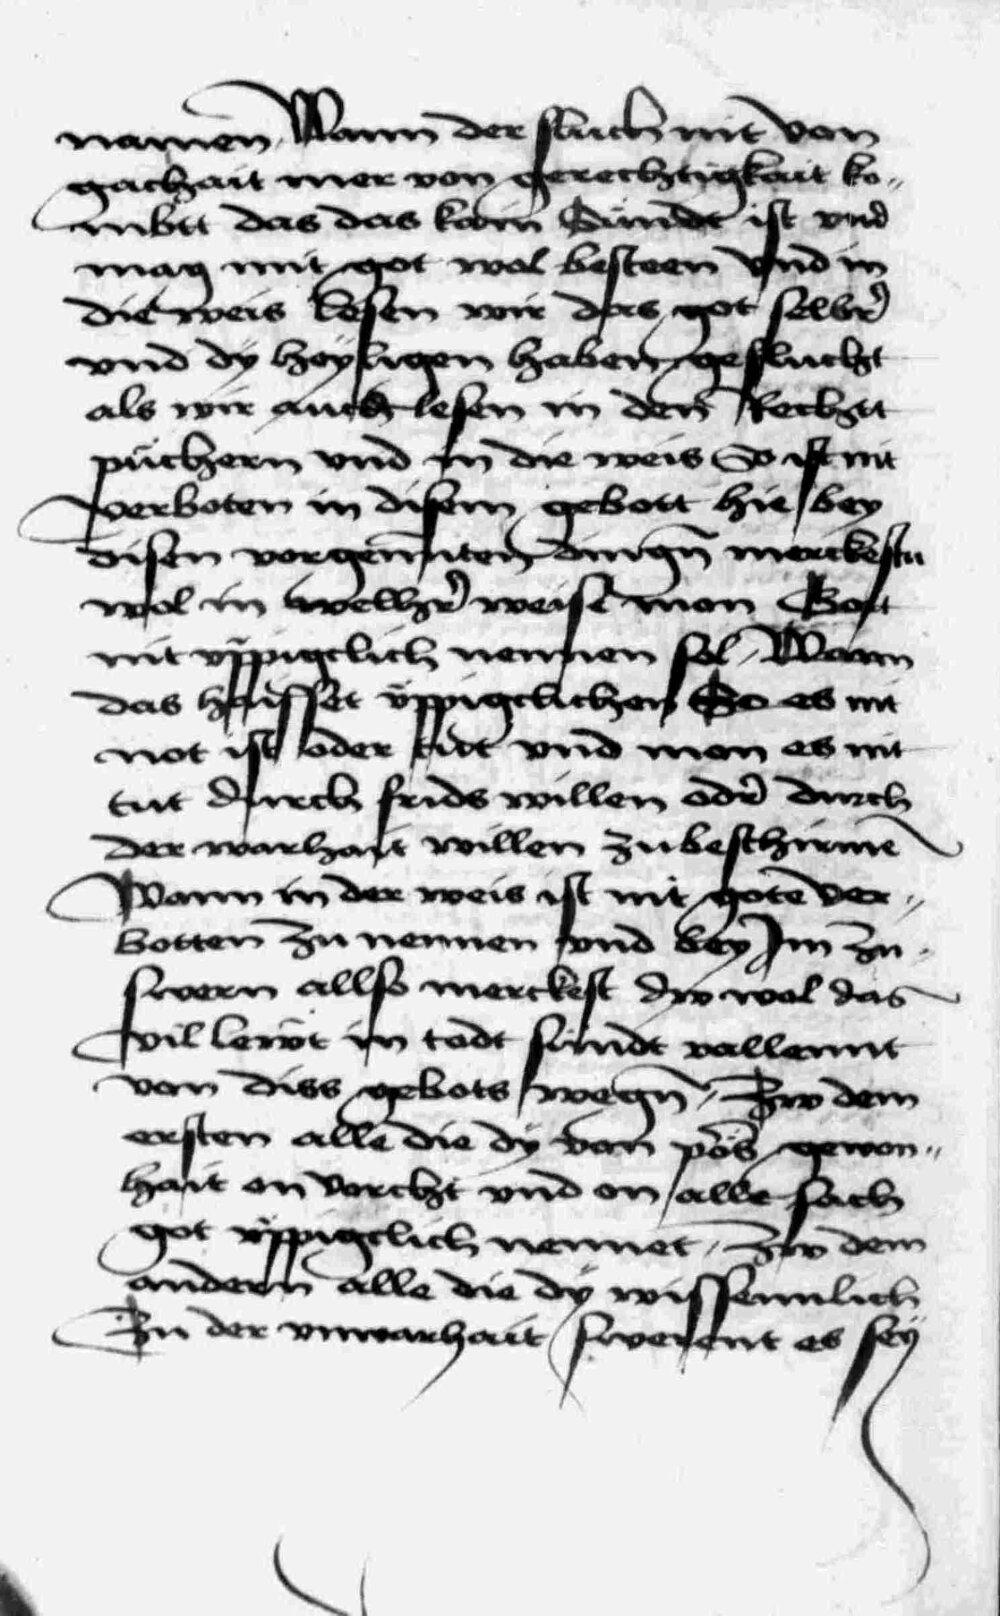 namen Wann der fluch nit von
gachait mer von gerechtigkait ko„
mbtt das das kain Sündt ist vnd
mag mit got wol besteen vnd in
die weis lesen wir das got selbr̄
vnd dÿ heÿligen haben geflucht
als wir auch lesen in den Rechtt
püchern vnd in die weis So ist nit
verboten in disem gebott hie bey
disen vorgenñten dingñ merckestu
wol in welhr̄ weise man Gott
nit vppigclich nennen sol, Wann
das haisset üppigclichen So es nit
not ist oder tut vnd man es nit
tut durch frids willen odr̄ durch
der warhait willen zubeschirmē
Wann in der weis ist nit gote ver„
botten zu nennen vnd bey Im zu„
swern allso merckest dw wol das
vil lewt in todt sündt vallennt
von diss gebots wegñ, Zw dem
ersten alle die dÿ von pös gewon„
hait on vorcht vnd on alle sach
got üppigclich nennet, Zw dem
andern alle die dÿ wissennlich
In der vnwarhait swerent es seÿ